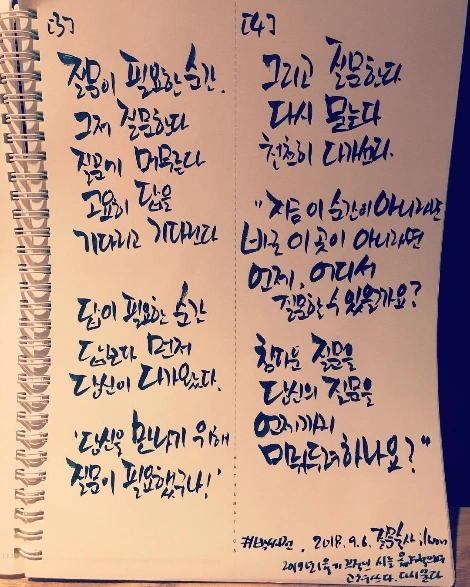 [3]
질문이 필요한 순간.
그저 질문한다
질문에 머무른다
고요히 답을
기다리고 기다린다
답이 필요한 순간
답보다 먼저
당신이 다가왔다.
'당신을 만나기 위해
질문이 필요했구나!'
[4]
그리고 질문한다
다시 묻는다
천천히 다가선다.
"지금 이 순간이 아니라면
바로 이 곳이 아니라면
언제, 어디서
질문할 수 있을까요?
참다운 질문을
당신의 질문을
언제까지
미뤄두려 하나요?"
2018. 9. 6. 질문술사
다시 쓴다